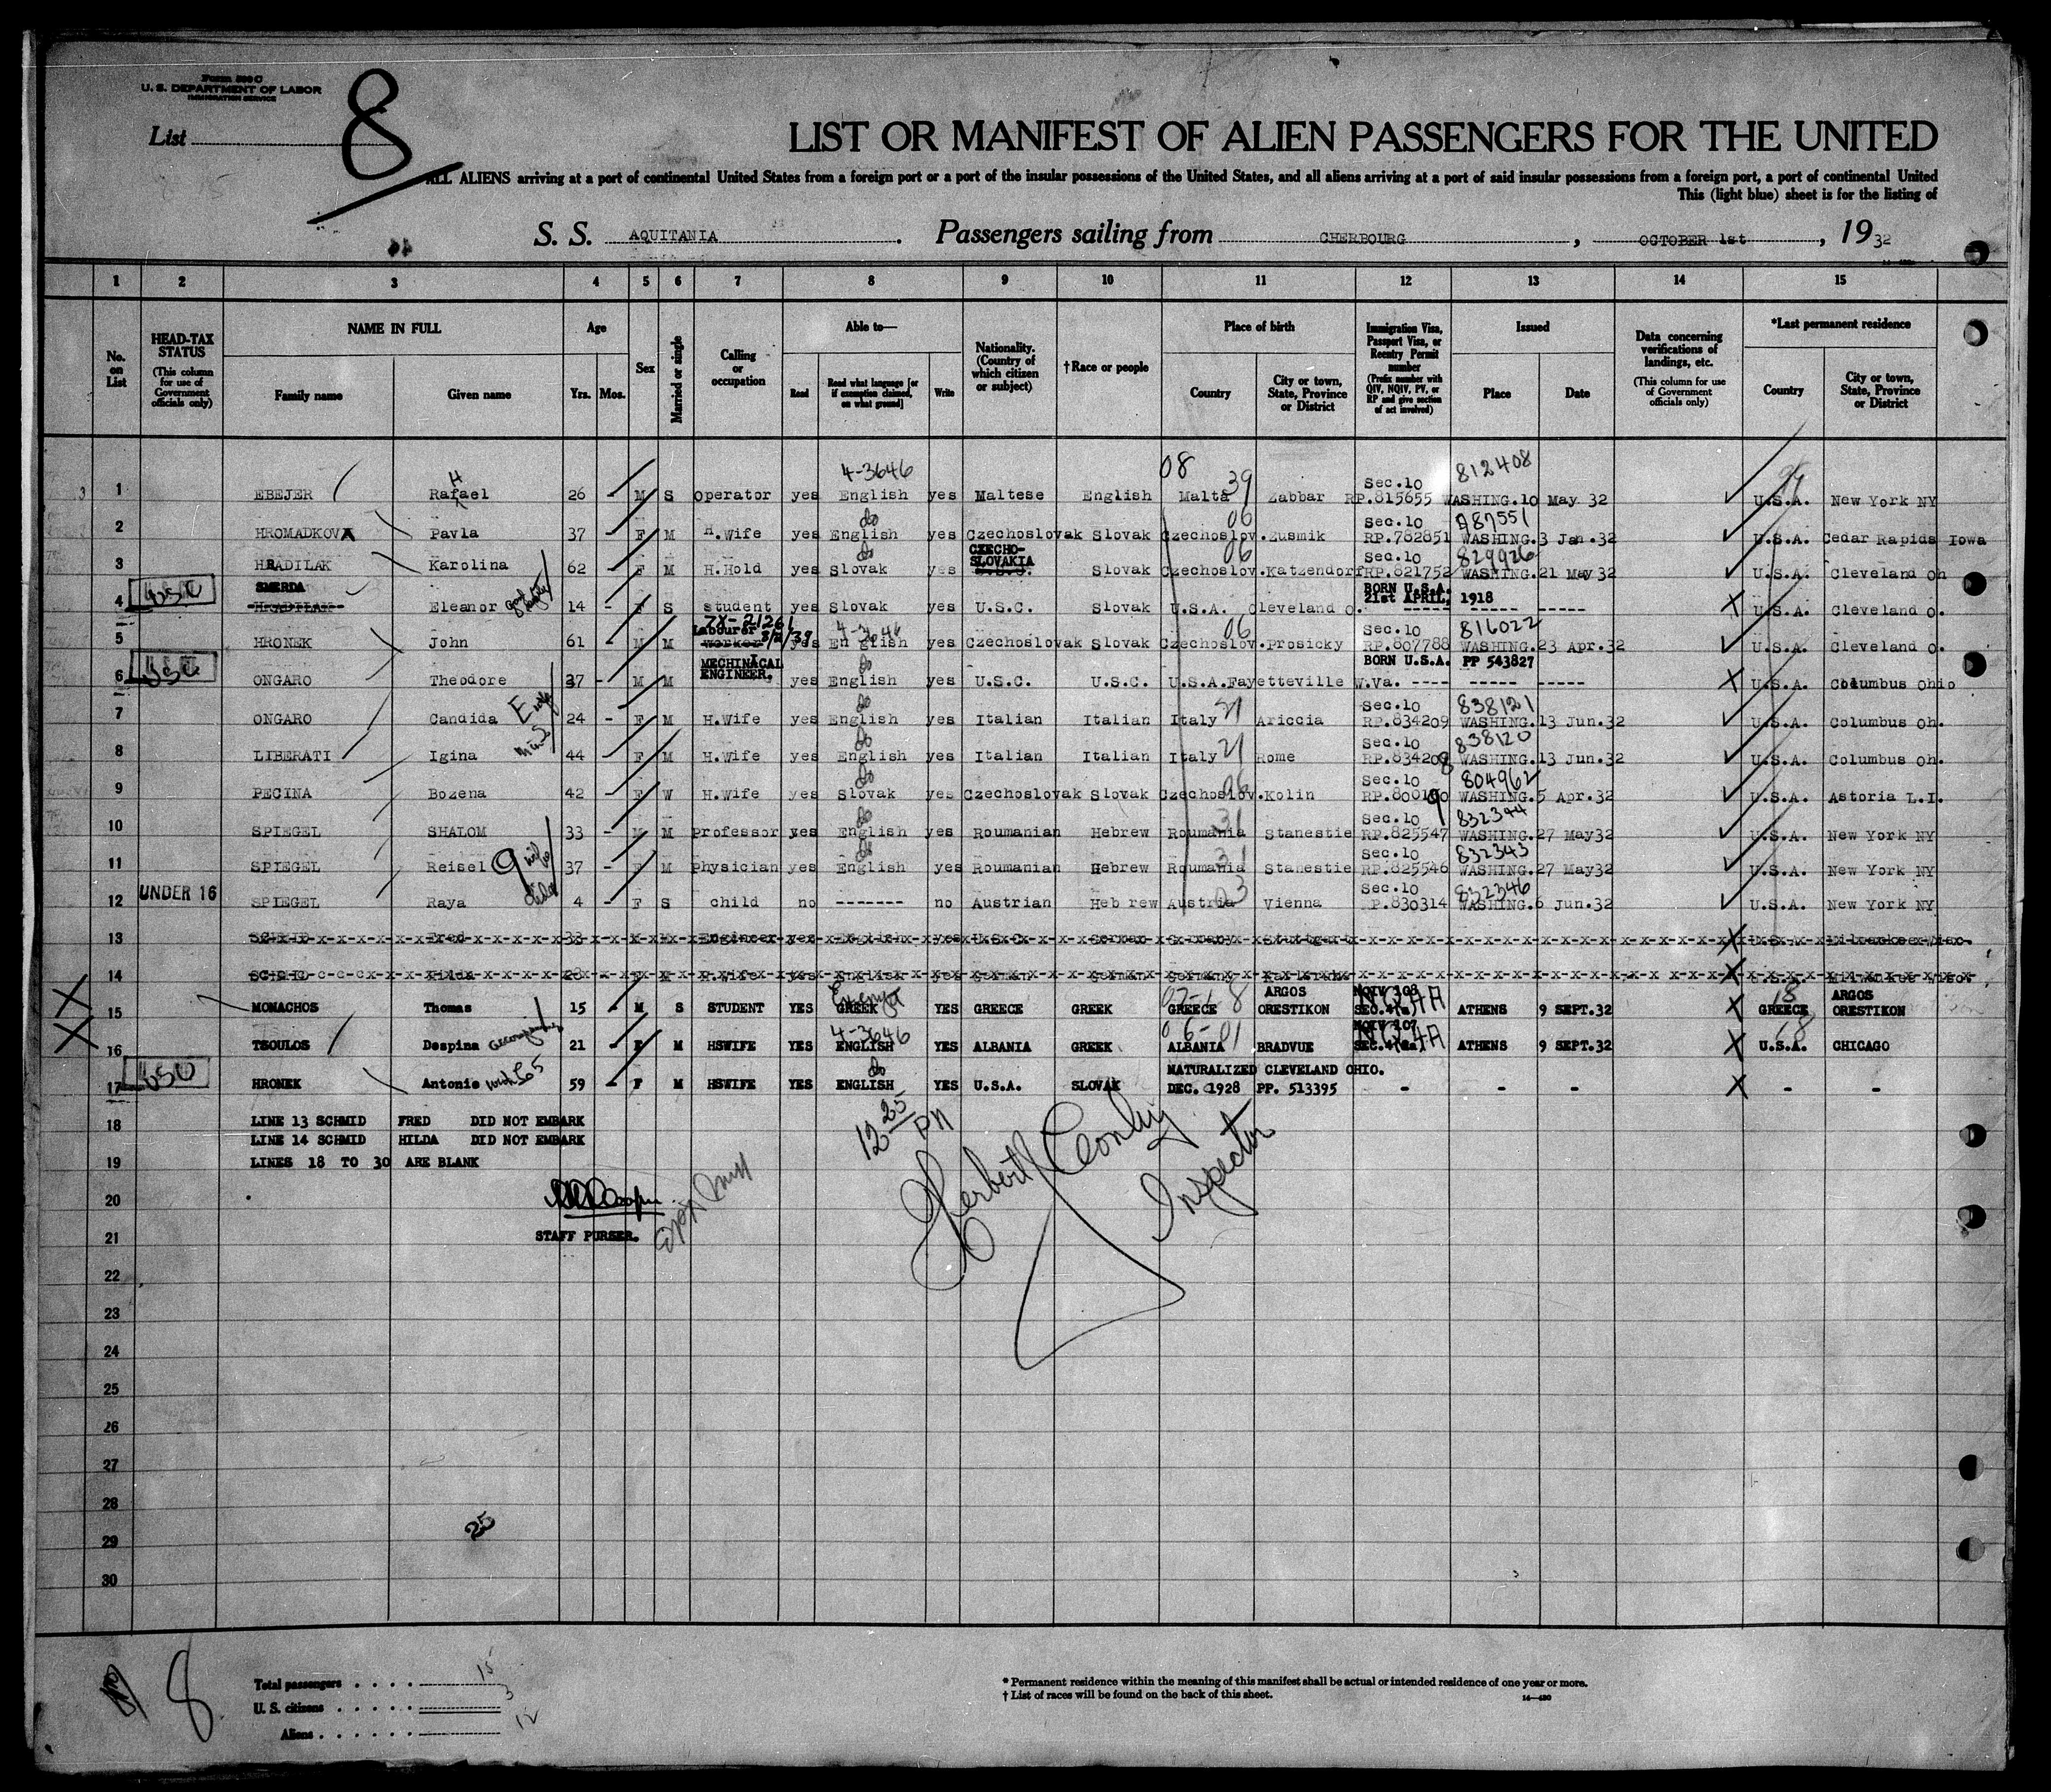 Form 500 C
U. S. DEPARTMENT OF LABOR
IMMIGRATION SERVICE
List
8
LIST OR MANIFEST OF ALIEN PASSENGERS FOR THE UNITED
ALL ALIENS arriving at a port of continental United States from a foreign port or a port of the insular possessions of the United States, and all aliens arriving at a port of said insular possessions from a foreign port, a port of continental United
This (light blue) sheet is for the listing of
S. S. AQUITANIA. Passengers sailing from CHERBOURG, OCTOBER 1st, 1932
1 2 3 4 5 6 7 8 9 10 11 12 13 14 15
No. on List
HEAD-TAX STATUS (This column for use of Government officials only)
NAME IN FULL
Family name Given name
Age
Yrs. Mos.
Sex
Married or single
Calling or occupation
Able to—
Read Read what language [or if exemption claimed, on what ground] Write
Nationality. (Country of which citizen or subject)
†Race or people
Place of birth
Country City or town, State, Province or District
Immigration Visa, Passport Visa, or Reentry Permit number (Prefix number with QIV, NQIV, PV, or RP and give section of act involved)
Issued
Place Date
Data concerning verifications of landings, etc. (This column for use of Government officials only)
*Last permanent residence
Country City or town, State, Province or District
4-3646 08 39 Sec.10 812408
1 EBEJER Rafael H 26 - M S Operator yes English yes Maltese English Malta Zabbar RP.815655 WASHING.10 May 32 U.S.A. New York NY
do 06 Sec.10 787551
2 HROMADKOVA Pavla 37 F M H.Wife yes English yes Czechoslovak Slovak Czechoslov.Zusmik RP.782851 WASHING.3 Jan.32 U.S.A. Cedar Rapids Iowa
do CZECHO-SLOVAKIA 06 Sec.10 829926
3 HRADILAK Karolina 62 - F M H.Hold yes Slovak yes Slovak Czechoslov.Katzendorf RP.821752 WASHING.21 May 32 U.S.A. Cleveland Oh
USC SMERDA BORN U.S.A. 21st APRIL, 1918
4 HRADILAK Eleanor 14 - F S student yes Slovak U.S.C. Slovak U.S.A. Cleveland O. ----- ----- ----- U.S.A. Cleveland O.
7X-21261 Labourer 4-3646 06 Sec.10 816022
5 HRONEK John 61 - M M yes English yes Czechoslovak Slovak Czechoslov.Prosicky RP.807788 WASHING.23 Apr.32 U.S.A. Cleveland O.
USC MECHINACAL ENGINEER. do BORN U.S.A. PP 543827
6 ONGARO Theodore 37 - M M yes English yes U.S.C. U.S.C. U.S.A.Fayetteville W.Va. ---- ----- ----- U.S.A. Columbus Ohio
do 21 Sec.10 838121
7 ONGARO Candida 24 - F M H.Wife yes English yes Italian Italian Italy Ariccia RP.834209 WASHING.13 Jun.32 U.S.A. Columbus Oh.
do 21 Sec.10 838120
8 LIBERATI Igina 44 - F M H.Wife yes English yes Italian Italian Italy Rome RP.834208 WASHING.13 Jun.32 U.S.A. Columbus Oh.
do 06 Sec.10 804962
9 PECINA Bozena 42 - F W H.Wife yes Slovak yes Czechoslovak Slovak Czechoslov.Kolin RP.800190 WASHING.5 Apr.32 U.S.A. Astoria L.I.
do 31 Sec.10 832344
10 SPIEGEL SHALOM 33 - M M Professor yes English yes Roumanian Hebrew Roumania Stanestie RP.825547 WASHING.27 May32 U.S.A. New York NY
do 31 Sec.10 832343
11 SPIEGEL Reisel 37 - F M Physician yes English yes Roumanian Hebrew Roumania Stanestie RP.825546 WASHING.27 May32 U.S.A. New York NY
UNDER 16 03 Sec.10 832346
12 SPIEGEL Raya 4 - F S child no ------- no Austrian Heb rew Austria Vienna RP.830314 WASHING.6 Jun.32 U.S.A. New York NY
13 Fred 33 M M Engineer yes English yes U.S.C. German Germany Stuttgart
14 Hilda F M H.Wife yes English yes German German Germany Karlsruhe
15 MONACHOS Thomas 15 - M S STUDENT YES GREEK YES GREECE GREEK GREECE ARGOS ORESTIKON NQIV 108 ATHENS 9 SEPT.32 GREECE ARGOS ORESTIKON
4-3646 06-01
16 TSOULOS Despina 21 - F M HSWIFE YES ENGLISH YES ALBANIA GREEK ALBANIA BRADVUE NQIV 107 ATHENS 9 SEPT.32 U.S.A. CHICAGO
USC do NATURALIZED CLEVELAND OHIO.
17 HRONEK Antonie 59 - F M HSWIFE YES ENGLISH YES U.S.A. SLOVAK DEC. 1928 PP. 513395 - - - - -
18 LINE 13 SCHMID FRED DID NOT EMBARK
LINE 14 SCHMID HILDA DID NOT EMBARK
19 LINES 18 TO 30 ARE BLANK
12 25 PM
Inspector
20
21 STAFF PURSER.
22
23
24
25
26
27
28
25
29
30
8
Total passengers 15
U. S. citizens 3
Aliens 12
* Permanent residence within the meaning of this manifest shall be actual or intended residence of one year or more.
† List of races will be found on the back of this sheet.
14—430